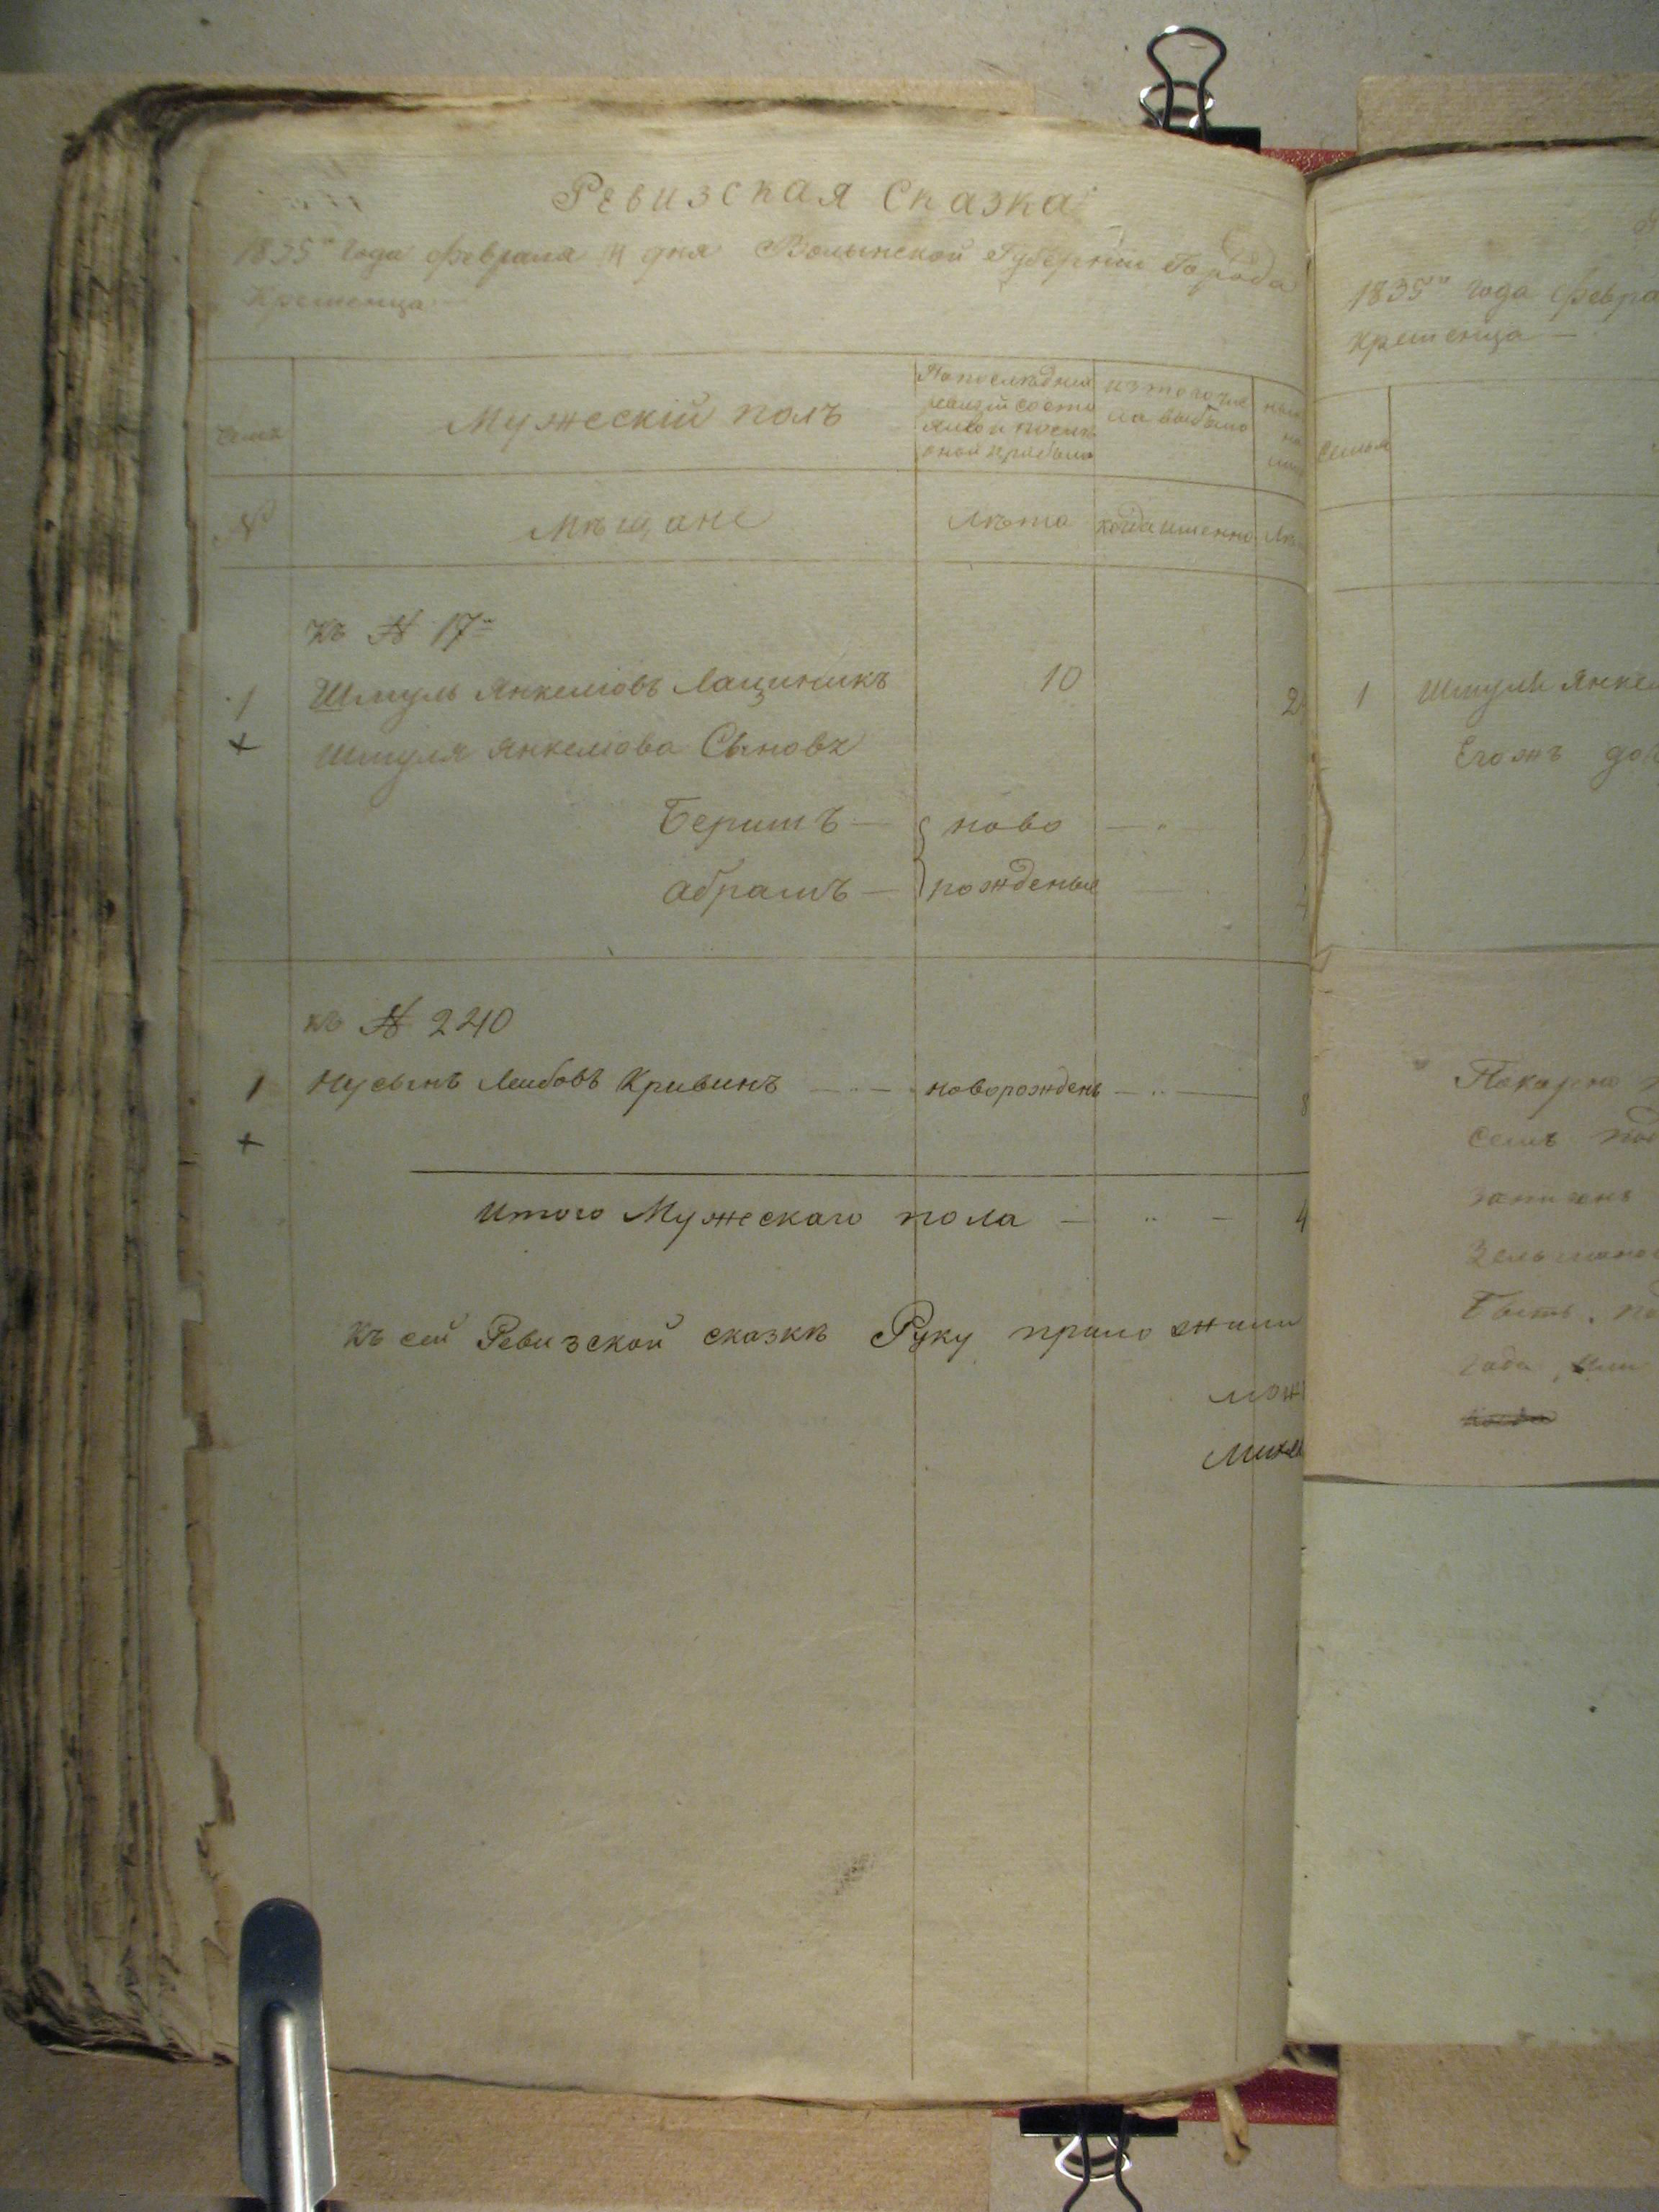 Ревизская Сказка
1835го года февраля 4 дня Волынской Губернии Города
Кременца
Семьи
Мужескій полъ
По последней
ревизіи состо
яло и после
оной прибыло
изъ того чис
ла выбыло
№
Мѣщане
Лѣта
когда именно
къ № 17му
1 Шмуль Янкелiовъ Лацинникъ 10
+ Шмуля Янкелiова Сыновъя
Беришъ — ново —
Абрамъ — рожденые
къ № 240
1 Нусынъ Лейбовъ Кривинъ — новорожденъ — 8
+
Итого Мужескаго пола — 4
Къ сей Ревизской сказкѣ Руку приложили
1835го года Февра
Кременца —
Семьи
1 Шмуля Янкел
Егожъ доч
Покорно
Семъ под
записанъ
Быть. по
года, или